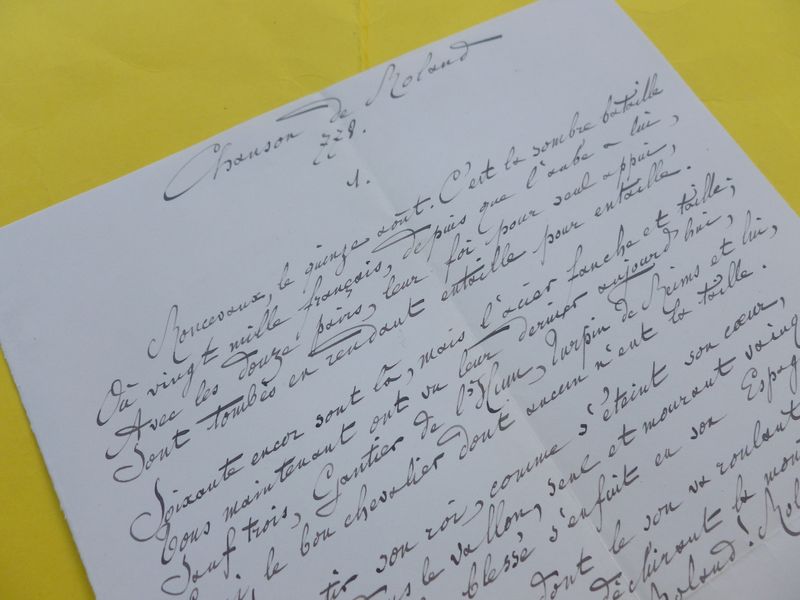 Chanson de Roland
778.
1.
Roncevaux, le quinze août. C'est la sombre bataille
Où vingt mille français, depuis que l'aube a lui,
Avec les douze pairs, leur foi pour seul appui,
Sont tombés en rendant entaille pour entaille.
Soixante encor sont là, mais l'acier fauche et taille;
Tous maintenant ont vu leur dernier aujourd'hui,
Sauf trois, Gautier de l'Hum, Turpin de Reims et lui,
le bon chevalier dont aucun n'eut la taille.
son roi, comme s'éteint son cœur,
le vallon, seul et mourant vainq
blessé s'enfuit en son Espag
dont le son va roulant
déchirant la mon
Roland! Rol